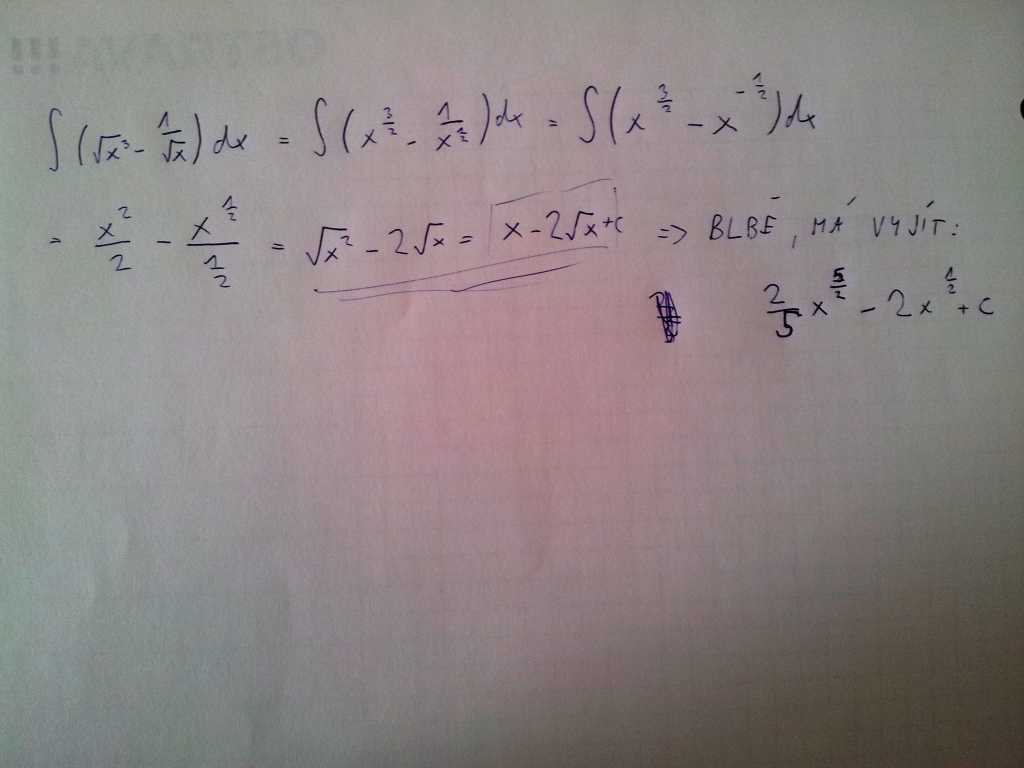 ∫(√x³ - 1/√x) dx = ∫(x^(3/2) - 1/x^(1/2)) dx = ∫(x^(3/2) - x^(-1/2)) dx
= x²/2 - x^(1/2)/(1/2) = √x² - 2√x = x - 2√x + c => BLBĚ, MÁ VYJÍT:
2/5 x^(5/2) - 2x^(1/2) + c